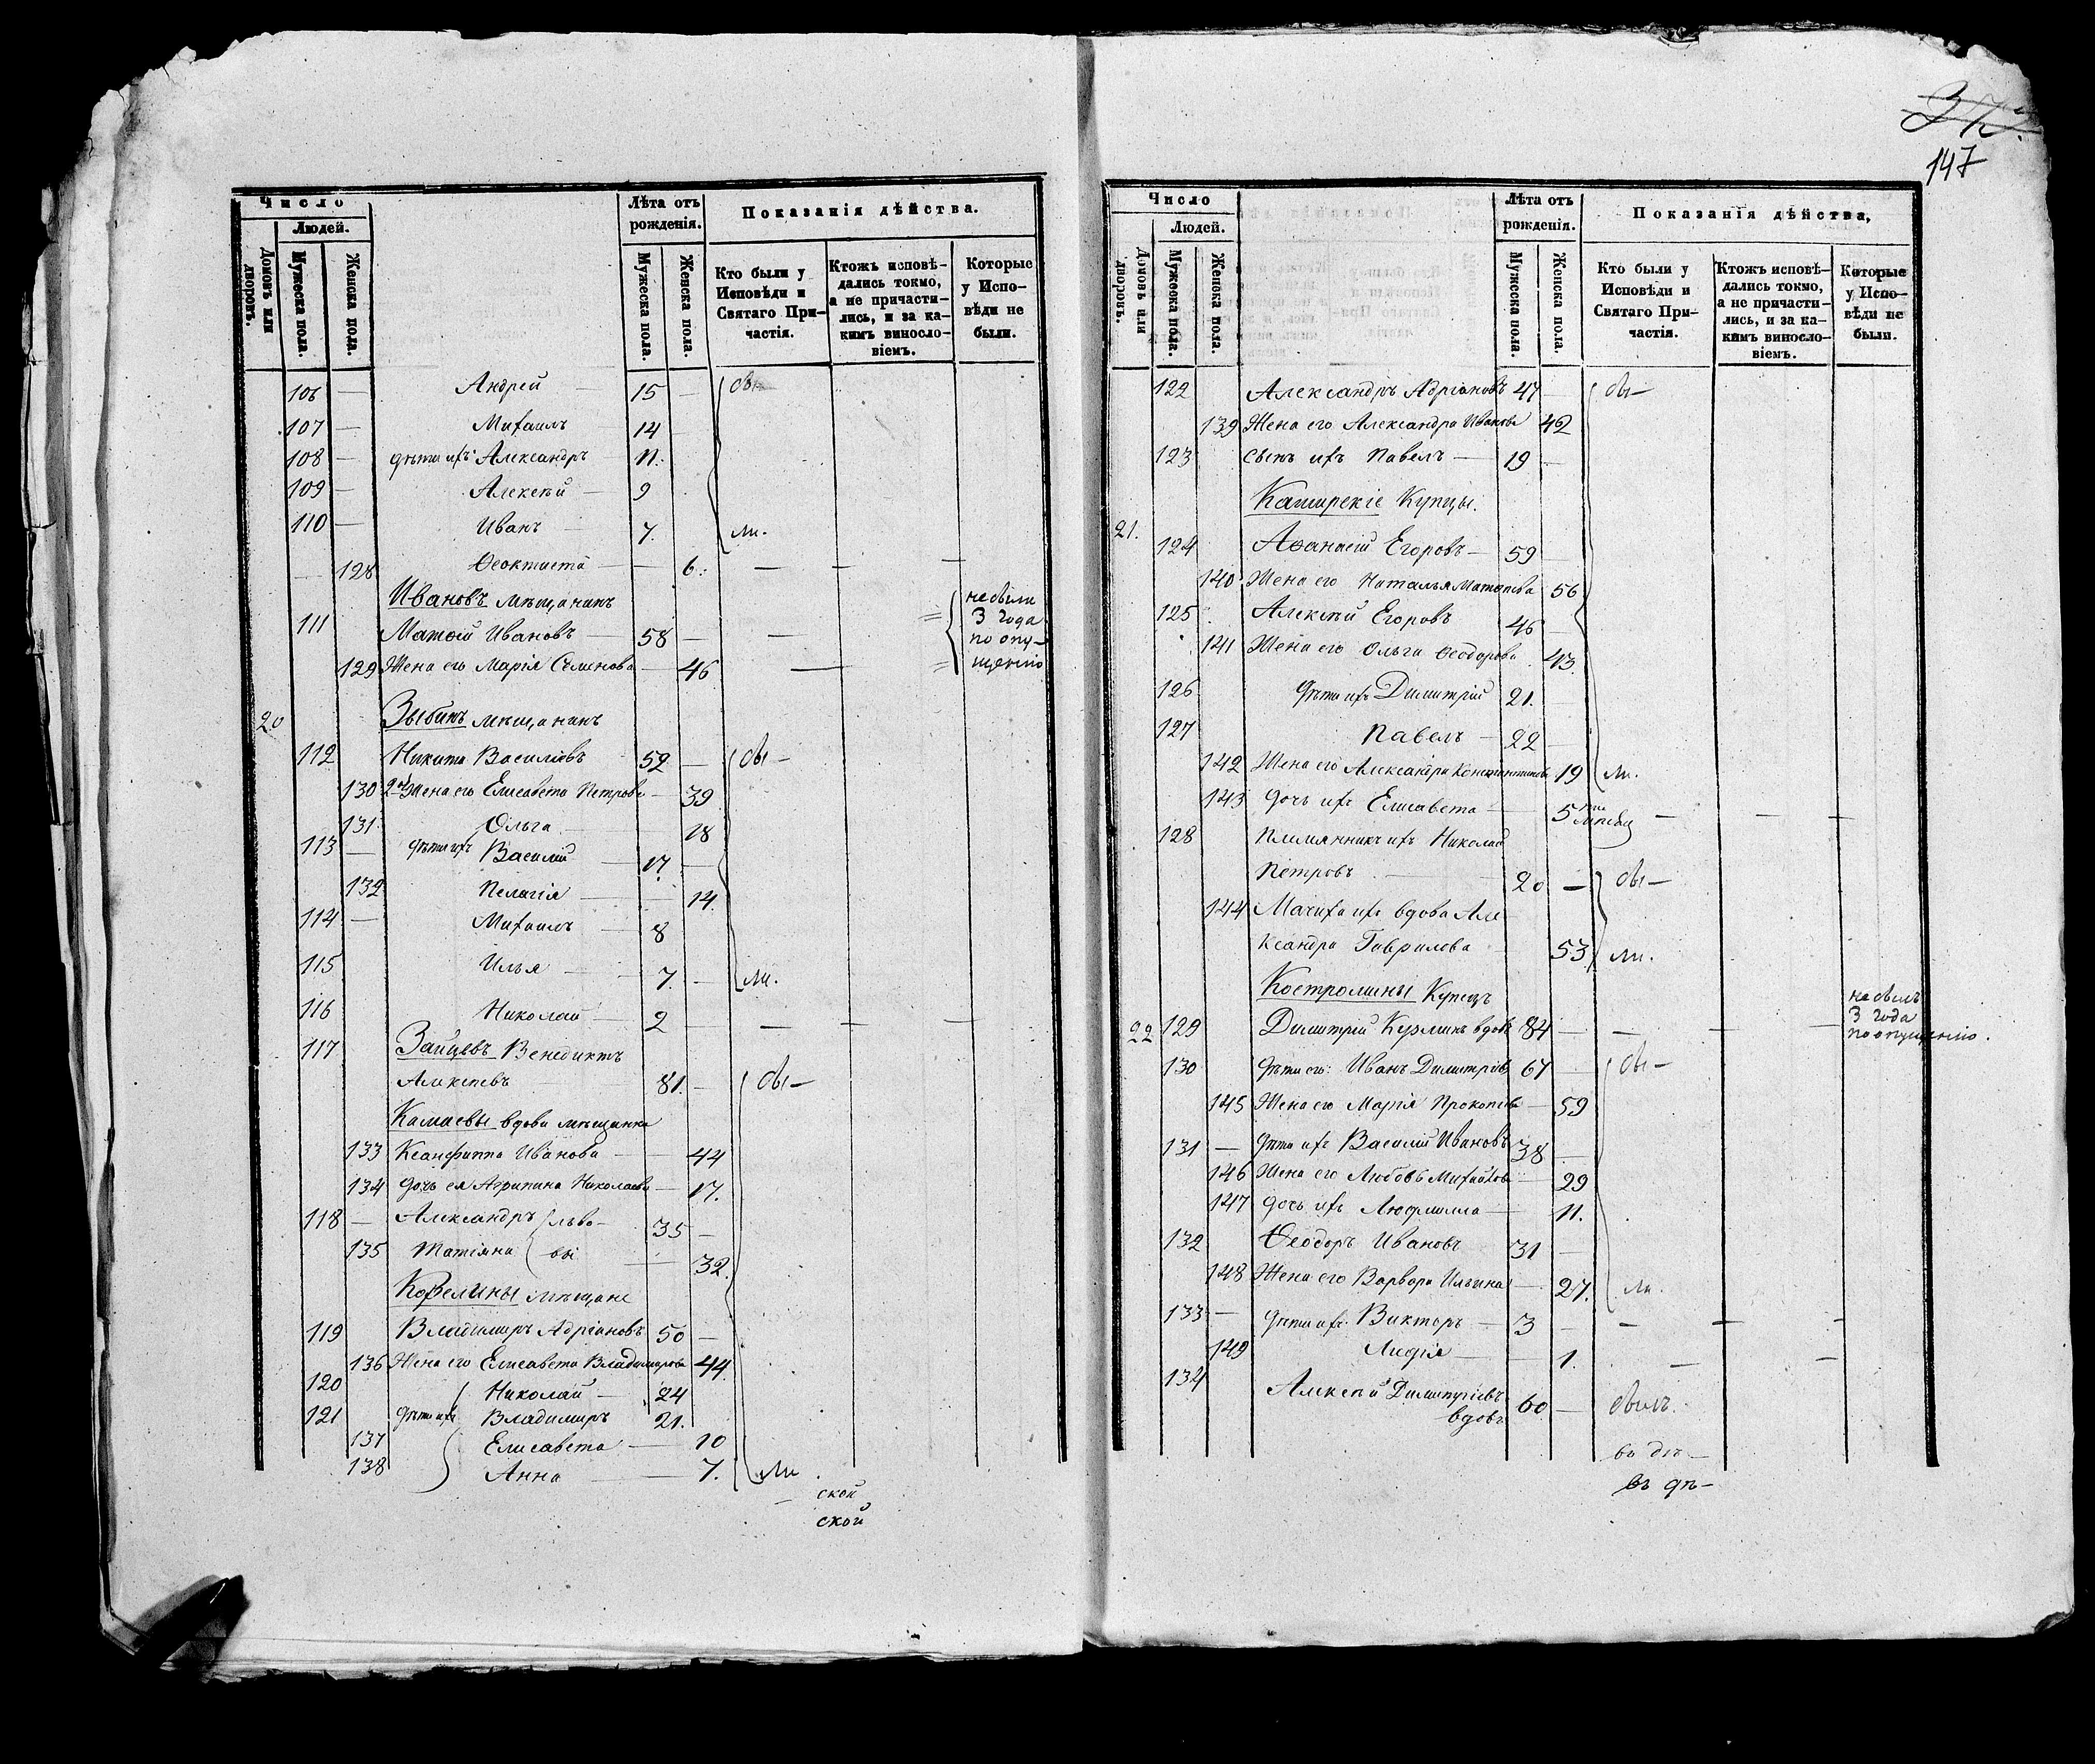 Число
Людей.
Домовъ или дворовъ.
Мужеска пола.
Женска пола.
Лѣта отъ рожденія.
Мужеска пола.
Женска пола.
Показанія дѣйства.
Кто были у Исповѣди и Святаго При-
частія.
Ктожъ исповѣ-
дались токмо,
а не причасти-
лись, и за ка-
кимъ винносло-
віемъ.
Которые
у Испо-
вѣди не
были.
106 — Андрей — 15 — бы-
107 — Михаилъ — 14 —
108 — дѣти ихъ Александръ — 11.
109 — Алексѣй — 9
110 — Иванъ — 7. ли.
— 128 Ѳеоктиста — — 6. — — —
Ивановъ мѣщанинъ
111 Матвѣй Ивановъ — 58 — — небыли 3 года по опу-
129 Жена его Марія Семенова — 46 — щенію
20 Зыбинъ мѣщанинъ
112 Никита Василіевъ 52 — бы-
130 2я Жена его Елисавета Петрова — 39
131. Ольга — 18
113 — дѣти ихъ Василій — 17. —
132 Пелагія — — 14.
114 — Михаилъ — 8
115 Илья — 7. — ли.
116 Николай — 2 — — — —
117 Зайцевъ Венедиктъ
Алексѣевъ — 81. — бы-
Камаевы вдова мѣщанка
133 Ксанфиппа Иванова — — 44
134 дочь ея Агрипина Николаева — 17.
118 — Александръ льво- 35 —
135 Татіяна вы — 32.
Кобелины мѣщане
119 Владимиръ Адріановъ 50 —
136 Жена его Елисавета Владимирова 44
120 Николай — 24
121 дѣти ихъ Владимиръ 21.
137 Елисавета — 10
138 Анна — — 7. ли
ской
ской
147
Число
Людей.
Домовъ или дворовъ.
Мужеска пола.
Женска пола.
Лѣта отъ рожденія.
Мужеска пола.
Женска пола.
Показанія дѣйства,
Кто были у
Исповѣди и
Святаго При-
частія.
Ктожъ исповѣ-
дались токмо,
а не причасти-
лись, и за ка-
кимъ винносло-
віемъ.
Которые
у Испо-
вѣди не
были.
122 Александръ Адріановъ 47 — бы-
139 Жена его Александра Иванова 42
123 сынъ ихъ Павелъ — 19 —
Каширскіе Купцы.
21.
124 Аѳанасій Егоровъ — 59 —
140 Жена его Наталья Матвѣева 56
125. Алексѣй Егоровъ 46 —
141 Жена его Ольга Ѳеодорова 43.
126 дѣти ихъ Димитрій 21. —
127 Павелъ — 22 —
142 Жена его Александра Константинова 19 ли.
143 дочь ихъ Елисавета — 5 ти мѣсяц — — —
128 Племянникъ ихъ Николай
Петровъ — 20 — бы-
144 Мачиха ихъ вдова Але-
ксандра Гаврилова — 53 ли.
Костромины Купецъ
22 129 Димитрій Кузминъ вдовъ 84 — — — — не былъ 3 года по опущенію.
130 дѣти его: Иванъ Димитріевъ 67 — бы-
145 Жена его Марія Прокопіева — 59
131 — дѣти ихъ Василій Ивановъ 38 —
146 Жена его Любовь Михайлова — 29
147 дочь ихъ Людмила — 11.
132 Ѳеодоръ Ивановъ 31 —
148 Жена его Варвара Ильина — 27. ли.
133 — дѣти ихъ Викторъ — 3 — — — —
149 Лидія — — 1. — —
134 Алексѣй Димитріевъ
вдовъ 60 — былъ.
въ дѣ-
въ дѣ-